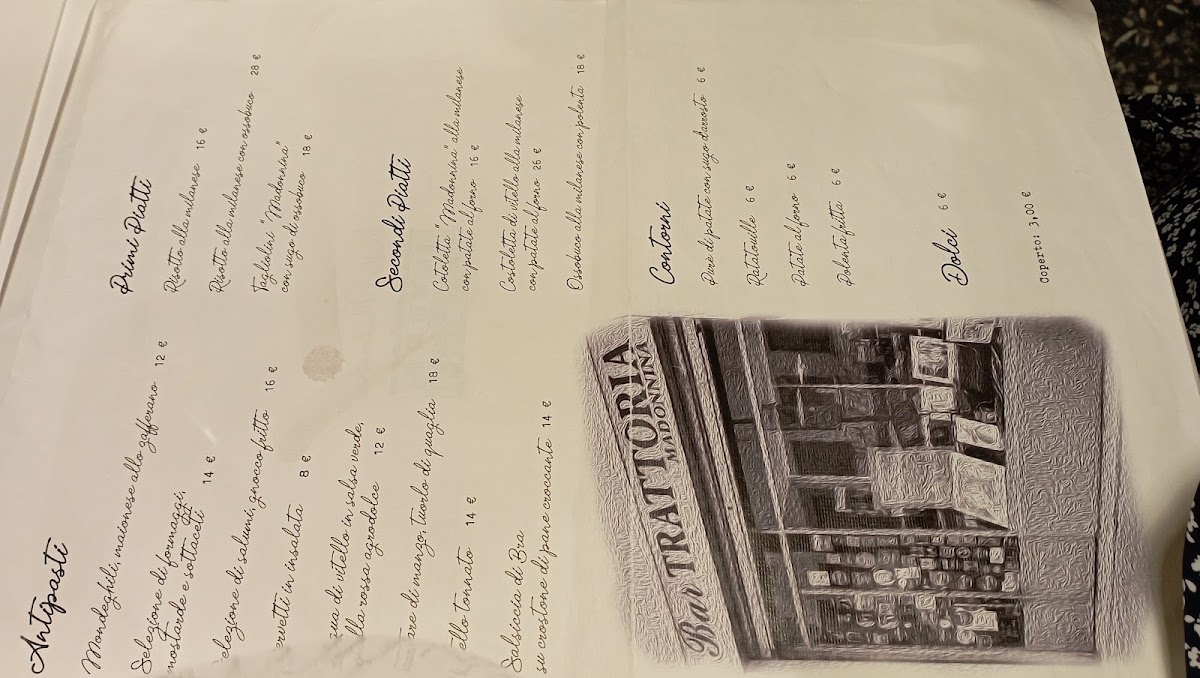 Antipasti
Mondeghili, maionese allo zafferano 12 €
Selezione di formaggi,
mostarde e sottaceti 14 €
elezione di salumi, gnocco fritto 16 €
ervetti in insalata 8 €
gua di vitello in salsa verde,
lla rossa agrodolce 12 €
are di mango, tuorlo di quaglia 18 €
ello tonnato 14 €
Salsiccia di Bra
su crostone di pane croccante 14 €
Primi Piatti
Risotto alla milanese 16 €
Risotto alla milanese con ossobuco 28 €
Tagliolini "Madonnina"
con sugo di ossobuco 18 €
Secondi Piatti
Cotoletta "Madonnina" alla milanese
con patate al forno 16 €
Costoletta di vitello alla milanese
con patate al forno 26 €
Ossobuco alla milanese con polenta 18 €
Contorni
Purè di patate con sugo d'arrosto 6 €
Ratatouille 6 €
Patate al forno 6 €
Polenta fritta 6 €
Dolci 6 €
Coperto: 3,00 €
Bar TRATTORIA
MADONNINA